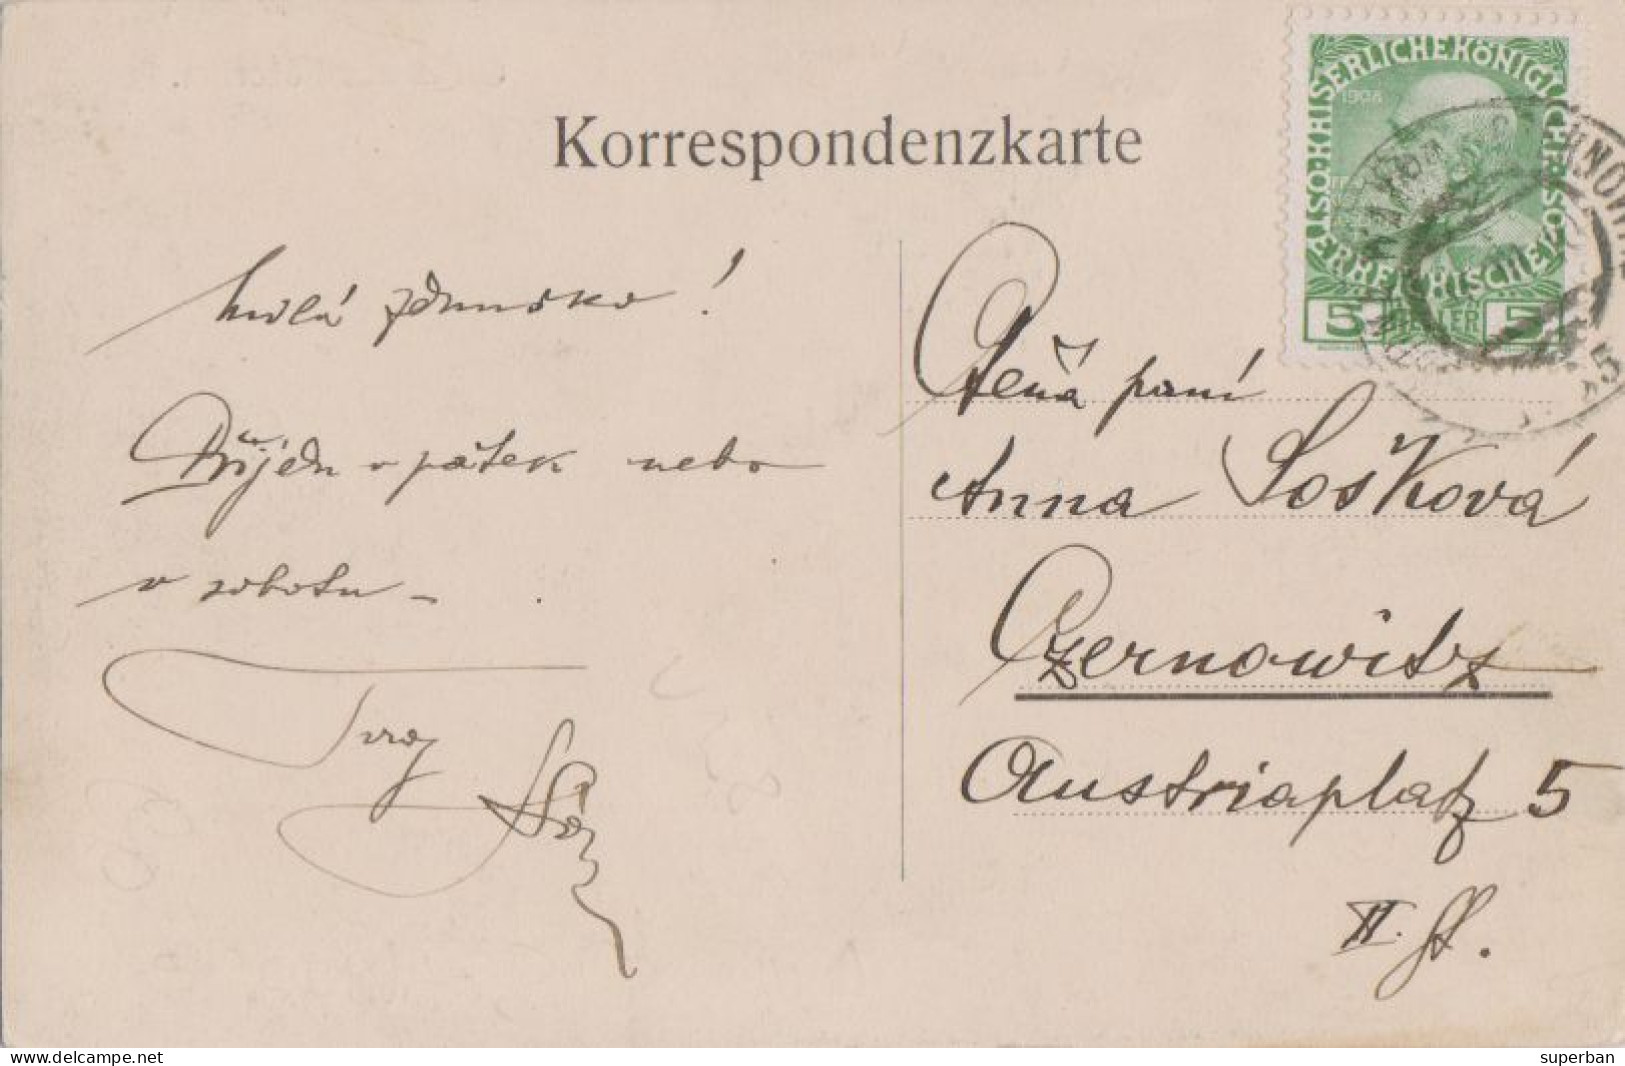 Korrespondenzkarte
KAISERLICHE KÖNIGLICHE ÖSTERREICHISCHE
1908
5 HELLER 5
milá ženuško!
Přijedu v pátek nebo
v sobotu –
Tvůj
Ctěná paní
Anna Sošková
Czernowitz
Austriaplatz 5
II. St.
www.delcampe.net
superban